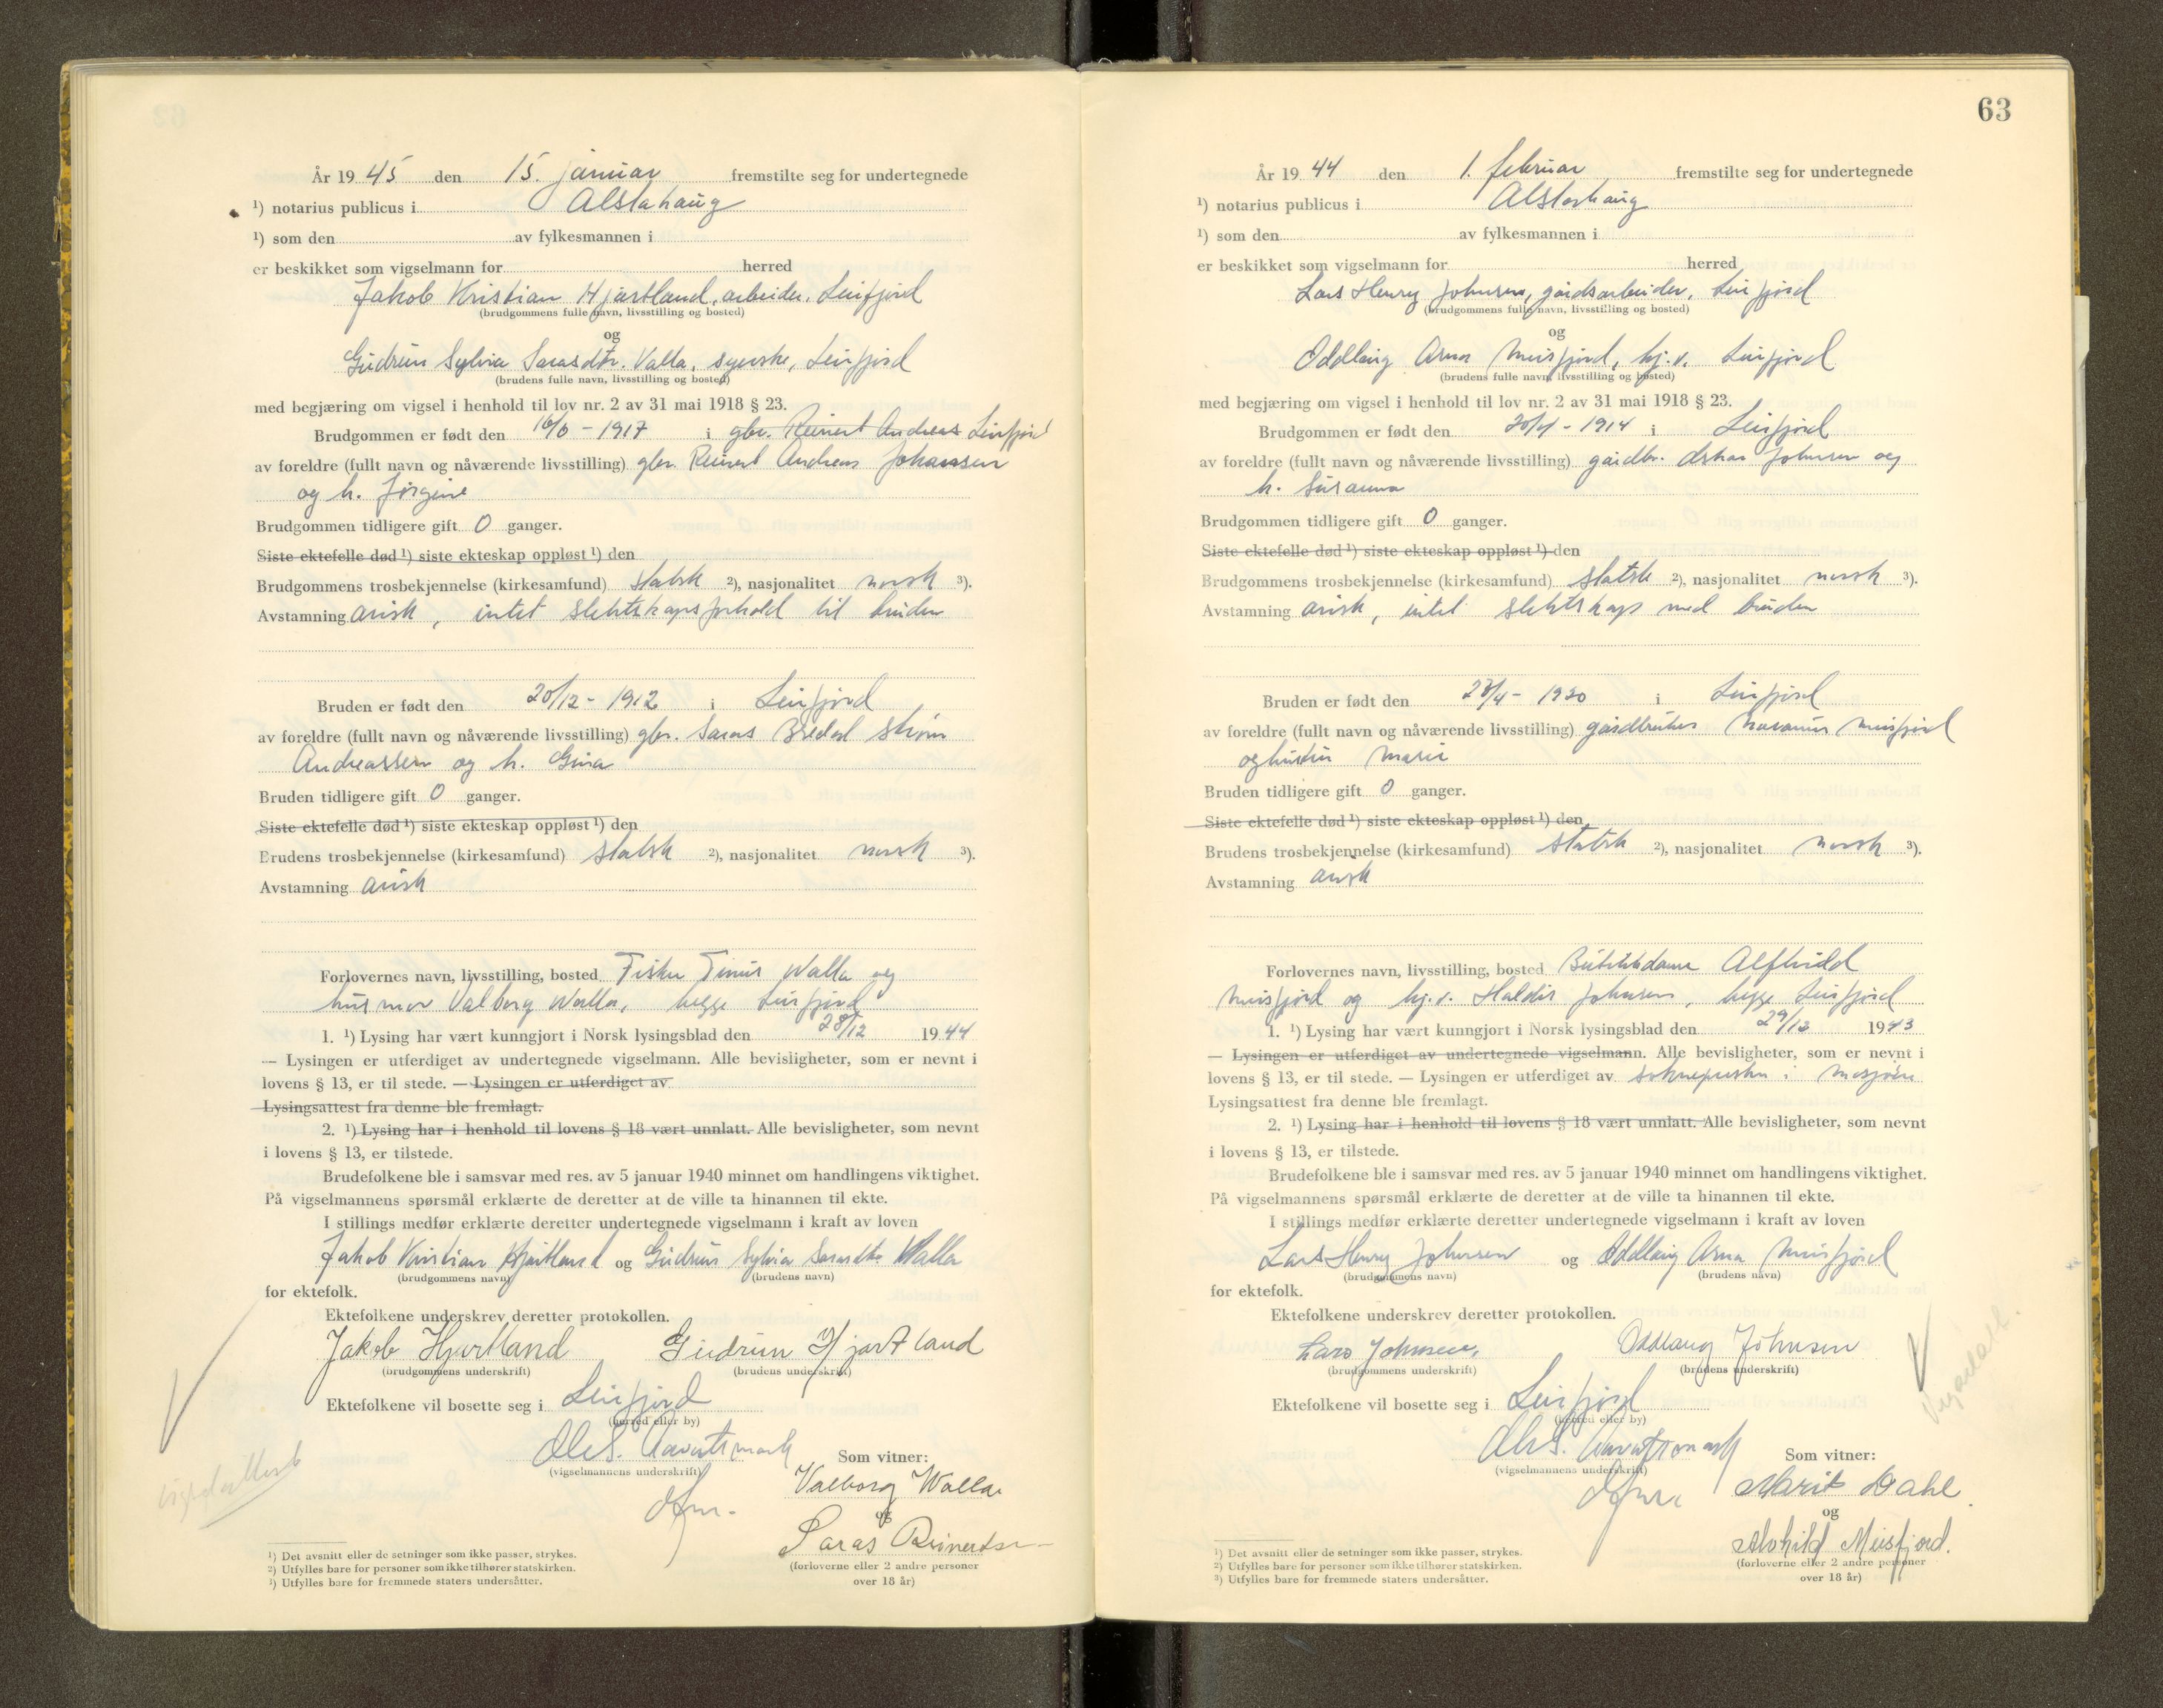 År 1945 den 15. januar fremstilte seg for undertegnede
¹) notarius publicus i Alstahaug
¹) som den av fylkesmannen i
er beskikket som vigselmann for herred
Jakob Kristian Hjartland, arbeider, Leirfjord
(brudgommens fulle navn, livsstilling og bosted)
og
Gudrun Sylvia Sarasdtr. Valla, syerske, Leirfjord
(brudens fulle navn, livsstilling og bosted)
med begjæring om vigsel i henhold til lov nr. 2 av 31 mai 1918 § 23.
Brudgommen er født den - 1917 i gbr. Reinert Andreas Leirfjord
av foreldre (fullt navn og nåværende livsstilling) gbr. Reinert Andreas Johansen
og h. Jørgine
Brudgommen tidligere gift 0 ganger.
Siste ektefelle død ¹) siste ekteskap oppløst ¹) den
Brudgommens trosbekjennelse (kirkesamfund) statsk ²), nasjonalitet norsk ³).
Avstamning arisk, intet slektskapsforhold til bruden
Bruden er født den 20/12 - 1912 i Leirfjord
av foreldre (fullt navn og nåværende livsstilling) gbr. Saras Bredal Strøm
Andreassen og h. Gina
Bruden tidligere gift 0 ganger.
Siste ektefelle død ¹) siste ekteskap oppløst ¹) den
Brudens trosbekjennelse (kirkesamfund) statsk ²), nasjonalitet norsk ³).
Avstamning arisk
Forlovernes navn, livsstilling, bosted Fisker Tinus Walla og
husmor Valborg Walla, begge Leirfjord
1. ¹) Lysing har vært kunngjort i Norsk lysingsblad den 28/12 1944
— Lysingen er utferdiget av undertegnede vigselmann. Alle bevisligheter, som er nevnt i
lovens § 13, er til stede. — Lysingen er utferdiget av
Lysingsattest fra denne ble fremlagt.
2. ¹) Lysing har i henhold til lovens § 18 vært unnlatt. Alle bevisligheter, som nevnt
i lovens § 13, er tilstede.
Brudefolkene ble i samsvar med res. av 5 januar 1940 minnet om handlingens viktighet.
På vigselmannens spørsmål erklærte de deretter at de ville ta hinannen til ekte.
I stillings medfør erklærte deretter undertegnede vigselmann i kraft av loven
Jakob Kristian Hjartland og Gudrun Sylvia Sarasdtr Walla
(brudgommens navn) (brudens navn)
for ektefolk.
Ektefolkene underskrev deretter protokollen.
Jakob Hjartland Gudrun Hjartland
(brudgommens underskrift) (brudens underskrift)
Ektefolkene vil bosette seg i Leirfjord
(herred eller by)
(vigselmannens underskrift) Som vitner:
Valborg Walla
og
Saras Reinertsen
(forloverne eller 2 andre personer
over 18 år)
vigselattest
¹) Det avsnitt eller de setninger som ikke passer, strykes.
²) Utfylles bare for personer som ikke tilhører statskirken.
³) Utfylles bare for fremmede staters undersåtter.
63
År 1944 den 1. februar fremstilte seg for undertegnede
¹) notarius publicus i Alstahaug
¹) som den av fylkesmannen i
er beskikket som vigselmann for herred
Lars Henry Johnsen, gårdsarbeider, Leirfjord
(brudgommens fulle navn, livsstilling og bosted)
og
Oddlaug Arna Meisfjord, hj.v. Leirfjord
(brudens fulle navn, livsstilling og bosted)
med begjæring om vigsel i henhold til lov nr. 2 av 31 mai 1918 § 23.
Brudgommen er født den - 1914 i Leirfjord
av foreldre (fullt navn og nåværende livsstilling) gårdbr. Oskar Johnsen og
h. Susanna
Brudgommen tidligere gift 0 ganger.
Siste ektefelle død ¹) siste ekteskap oppløst ¹) den
Brudgommens trosbekjennelse (kirkesamfund) statsk ²), nasjonalitet norsk ³).
Avstamning arisk, intet slektskap med bruden
Bruden er født den 23/4 - 1920 i Leirfjord
av foreldre (fullt navn og nåværende livsstilling) gårdbruker Meisfjord
og hustru Marie
Bruden tidligere gift 0 ganger.
Siste ektefelle død ¹) siste ekteskap oppløst ¹) den
Brudens trosbekjennelse (kirkesamfund) statsk ²), nasjonalitet norsk ³).
Avstamning arisk
Forlovernes navn, livsstilling, bosted Butikkdame Alfhild
Meisfjord og hj.v. Haldis Johnsen, begge Leirfjord
1. ¹) Lysing har vært kunngjort i Norsk lysingsblad den 29/12 1943
— Lysingen er utferdiget av undertegnede vigselmann. Alle bevisligheter, som er nevnt i
lovens § 13, er til stede. — Lysingen er utferdiget av soknepresten i Mosjøen
Lysingsattest fra denne ble fremlagt.
2. ¹) Lysing har i henhold til lovens § 18 vært unnlatt. Alle bevisligheter, som nevnt
i lovens § 13, er tilstede.
Brudefolkene ble i samsvar med res. av 5 januar 1940 minnet om handlingens viktighet.
På vigselmannens spørsmål erklærte de deretter at de ville ta hinannen til ekte.
I stillings medfør erklærte deretter undertegnede vigselmann i kraft av loven
Lars Henry Johnsen og Oddlaug Arna Meisfjord
(brudgommens navn) (brudens navn)
for ektefolk.
Ektefolkene underskrev deretter protokollen.
Lars Johnsen, Oddlaug Johnsen
(brudgommens underskrift) (brudens underskrift)
Ektefolkene vil bosette seg i Leirfjord
(herred eller by)
(vigselmannens underskrift) Som vitner:
Marit Dahl
og
Alvhild Meisfjord.
(forloverne eller 2 andre personer
over 18 år)
¹) Det avsnitt eller de setninger som ikke passer, strykes.
²) Utfylles bare for personer som ikke tilhører statskirken.
³) Utfylles bare for fremmede staters undersåtter.